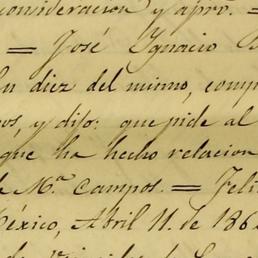 consideracion y apro. =
= José Ignacio B
En diez del mismo, comp
os, y dijo: que pide al
que ha hecho relacion
de M.ª Campos. = Feli
México, Abril 11. de 186